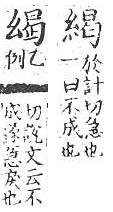 於計切急也
一曰不成也
乙
例
切說文云不
成遂急戾也